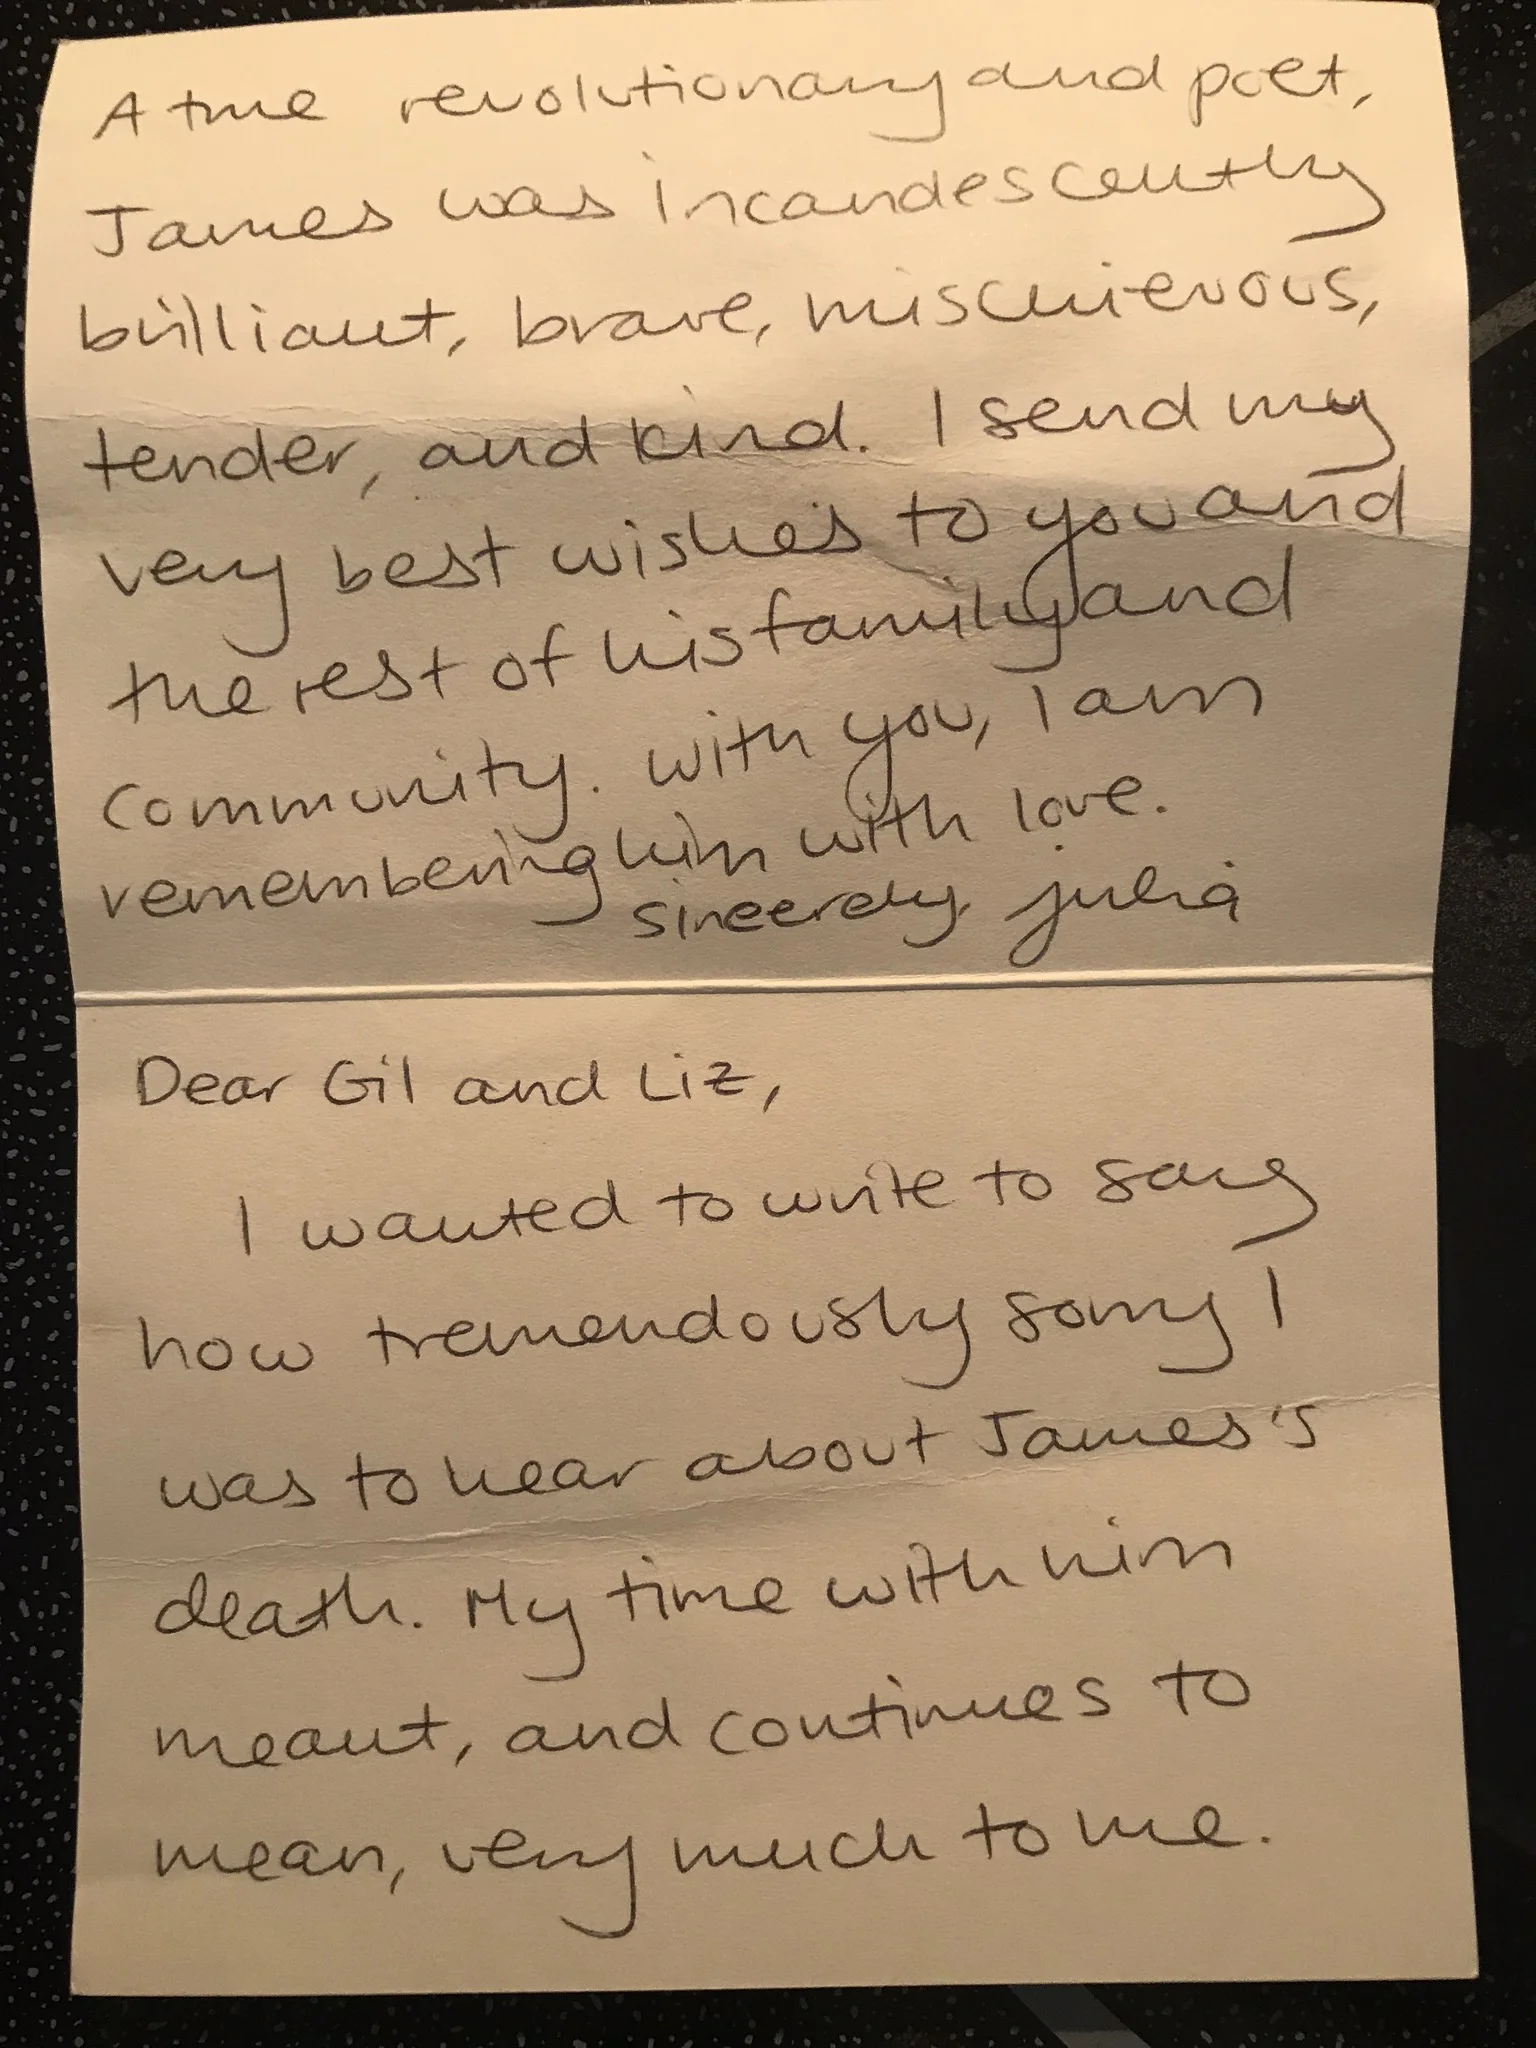 A true revolutionary and poet,
James was incandescently
brilliant, brave, mischievous,
tender, and kind. I send my
very best wishes to you and
the rest of his family and
community. With you, I am
remembering him with love.
sincerely, Julia
Dear Gil and Liz,
I wanted to write to say
how tremendously sorry I
was to hear about James's
death. My time with him
meant, and continues to
mean, very much to me.